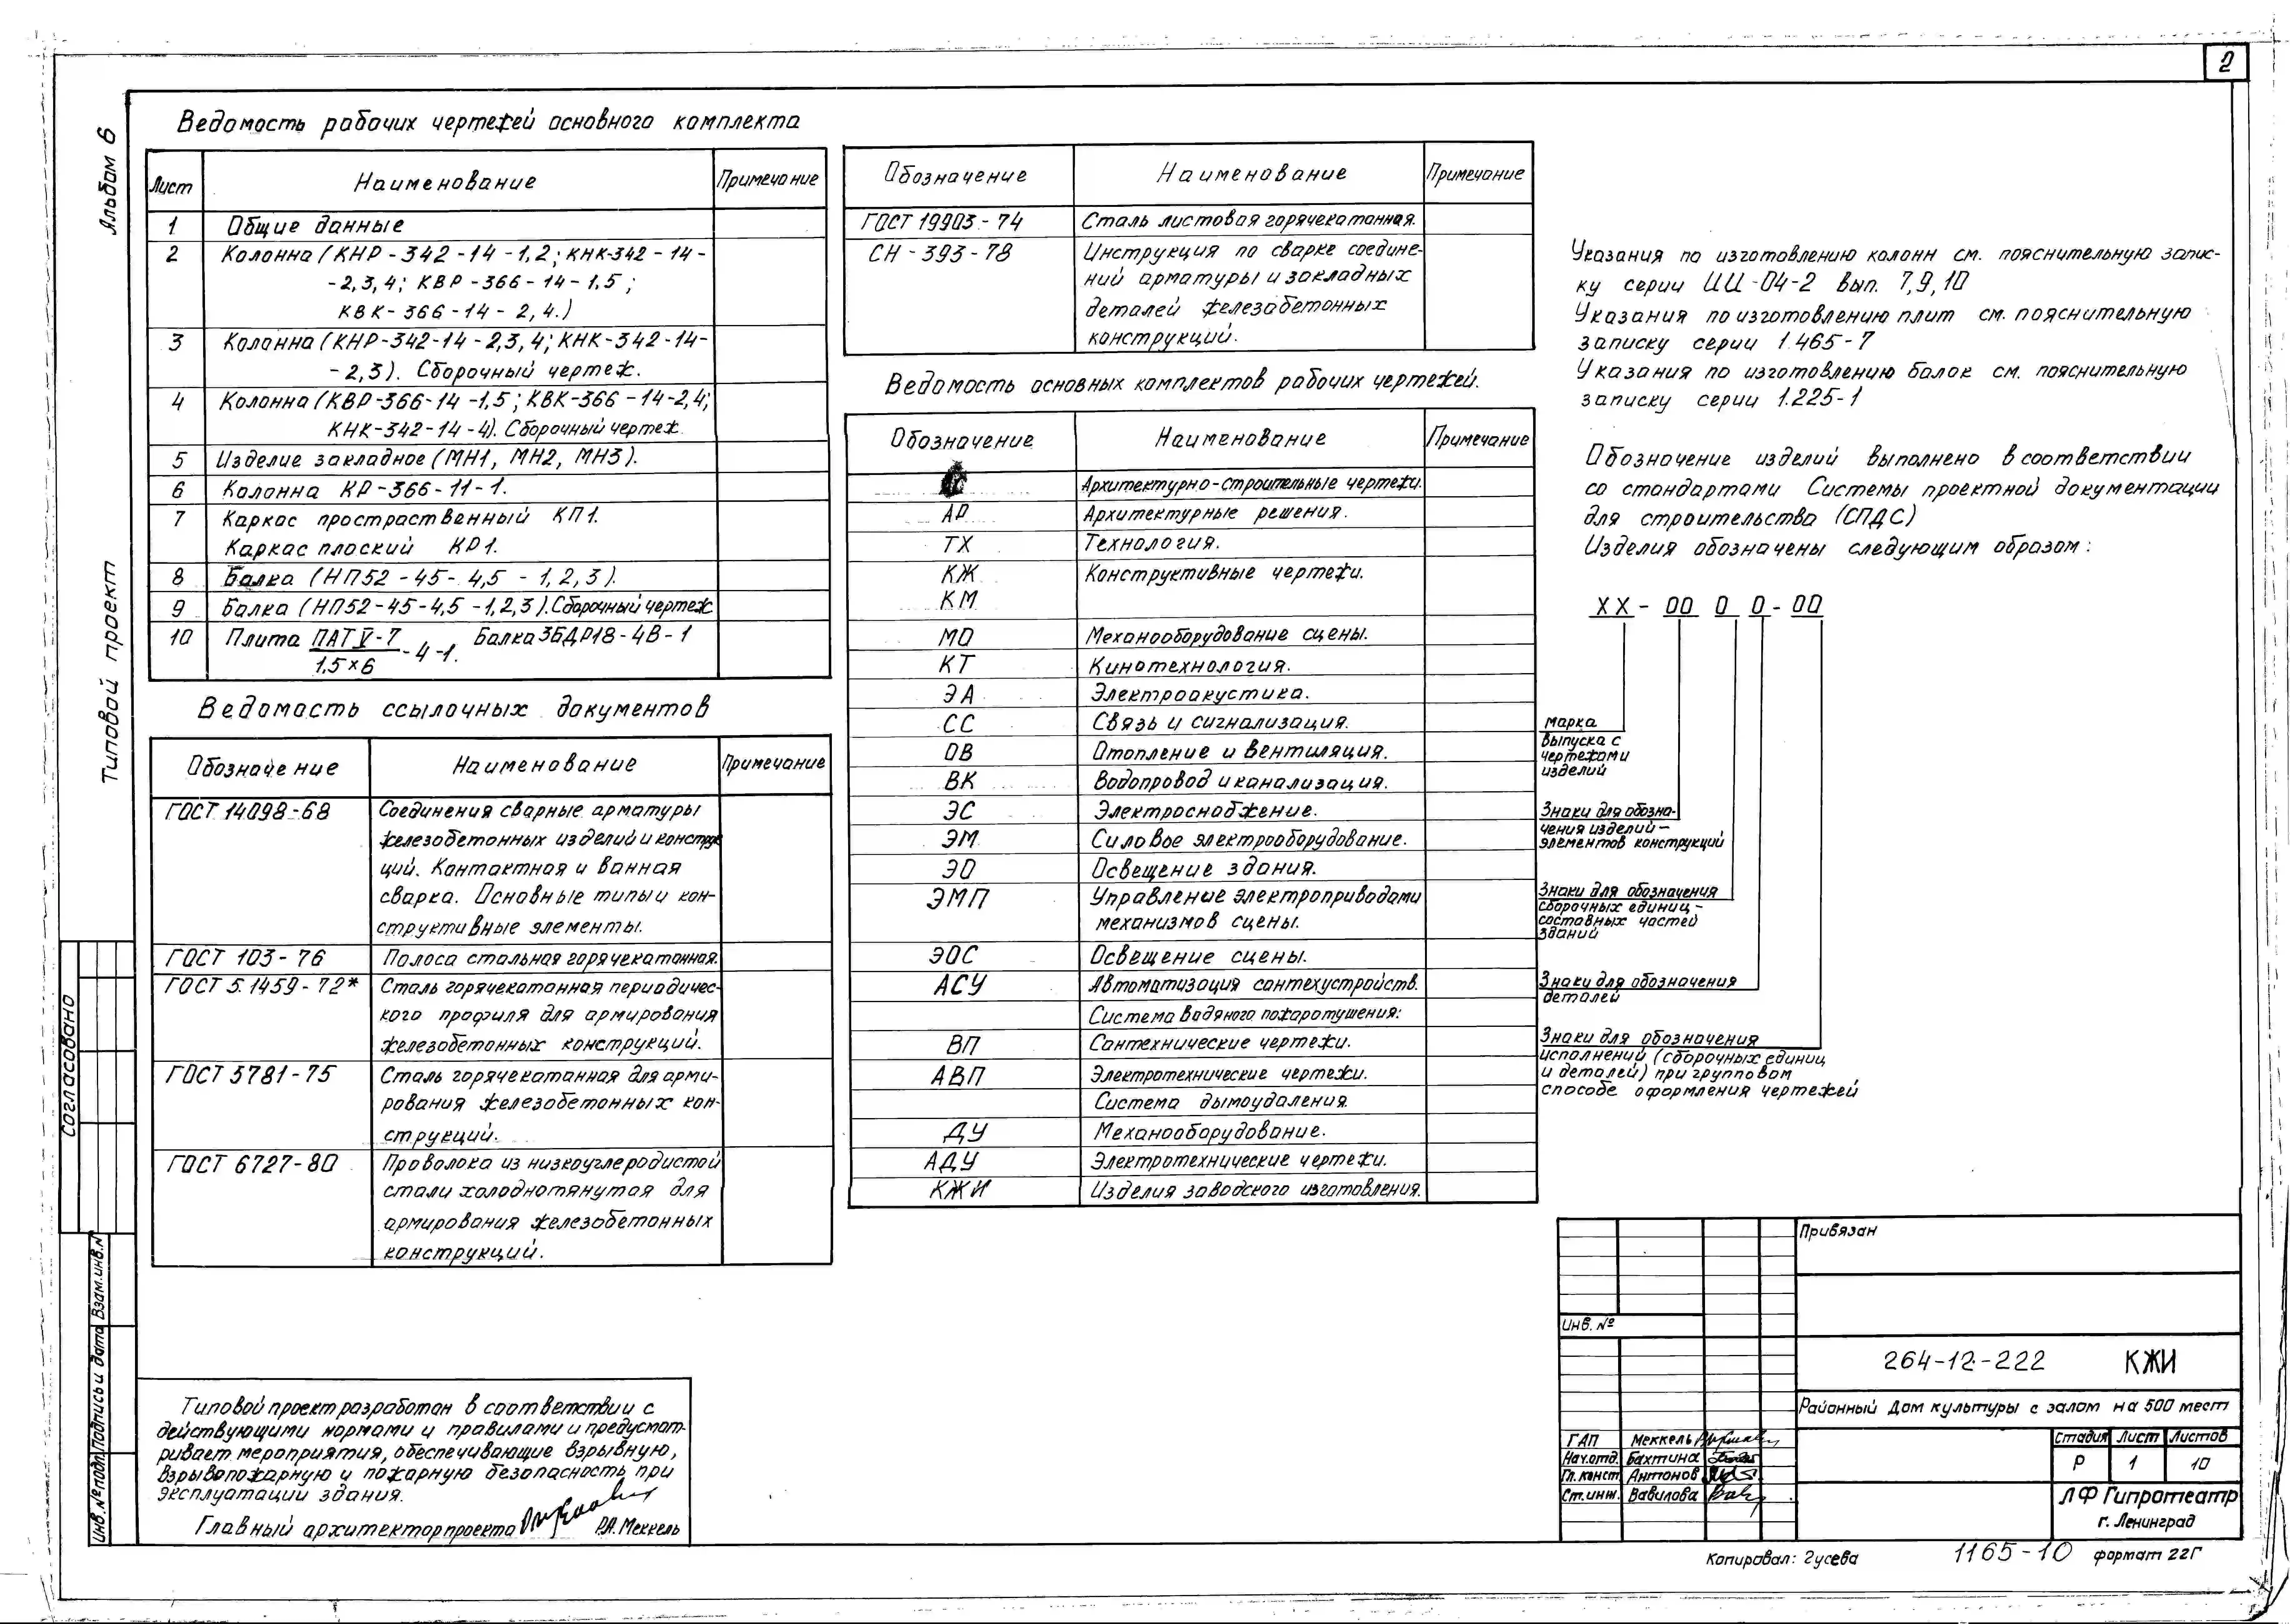 2
Альбом 6
Типовой проект
Согласовано
Взам.инв.№
Подпись и дата
Инв.№ подл.
Ведомость рабочих чертежей основного комплекта
Лист Наименование Примечание
1 Общие данные
2 Колонна (КНР-342-14-1,2; КНК-342-14-
-2,3,4; КВР-366-14-1,5;
КВК-366-14-2,4.)
3 Колонна (КНР-342-14-2,3,4; КНК-342-14-
-2,3). Сборочный чертеж.
4 Колонна (КВР-366-14-1,5; КВК-366-14-2,4;
КНК-342-14-4). Сборочный чертеж.
5 Изделие закладное (МН1, МН2, МН3).
6 Колонна КР-366-11-1.
7 Каркас простраственный КП1.
Каркас плоский КР1.
8 Балка (НП52-45-4,5-1,2,3).
9 Балка (НП52-45-4,5-1,2,3). Сборочный чертеж
10 Плита ПАТV-7 -4-1. Балка 3БДР18-4В-1
1,5×6
Ведомость ссылочных документов
Обозначение Наименование Примечание
ГОСТ 14098-68 Соединения сварные арматуры
железобетонных изделий и конструк
ций. Контактная и ванная
сварка. Основные типы и кон-
структивные элементы.
ГОСТ 103-76 Полоса стальная горячекатанная.
ГОСТ 5.1459-72* Сталь горячекатанная периодичес-
кого профиля для армирования
железобетонных конструкций.
ГОСТ 5781-75 Сталь горячекатанная для арми-
рования железобетонных кон-
струкций.
ГОСТ 6727-80 Проволока из низкоуглеродистой
стали холоднотянутая для
армирования железобетонных
конструкций.
Типовой проект разработан в соответствии с
действующими нормами и правилами и предусмат-
ривает мероприятия, обеспечивающие взрывную,
взрывопожарную и пожарную безопасность при
эксплуатации здания.
Главный архитектор проекта Р.А. Меккель
Обозначение Наименование Примечание
ГОСТ 19903-74 Сталь листовая горячекатанная.
СН-393-78 Инструкция по сварке соедине-
ний арматуры и закладных
деталей железобетонных
конструкций.
Ведомость основных комплектов рабочих чертежей.
Обозначение Наименование Примечание
Архитектурно-строительные чертежи.
АР Архитектурные решения.
ТХ Технология.
КЖ Конструктивные чертежи.
КМ
МО Механооборудование сцены.
КТ Кинотехнология.
ЭА Электроакустика.
СС Связь и сигнализация.
ОВ Отопление и вентиляция.
ВК Водопровод и канализация.
ЭС Электроснабжение.
ЭМ Силовое электрооборудование.
ЭО Освещение здания.
ЭМП Управление электроприводами
механизмов сцены.
ЭОС Освещение сцены.
АСУ Автоматизация сантехустройств.
Система водяного пожаротушения:
ВП Сантехнические чертежи.
АВП Электротехнические чертежи.
Система дымоудаления
ДУ Механооборудование.
АДУ Электротехнические чертежи.
КЖИ Изделия заводского изготовления.
Указания по изготовлению колонн см. пояснительную запис-
ку серии ИИ-04-2 вып. 7,9,10
Указания по изготовлению плит см. пояснительную
записку серии 1.465-7
Указания по изготовлению балок см. пояснительную
записку серии 1.225-1
Обозначение изделий выполнено в соответствии
со стандартами Системы проектной документации
для строительства (СПДС)
Изделия обозначены следующим образом:
ХХ-00 0 0-00
марка
выпуска с
чертежами
изделий
Знаки для обозна-
чения изделий-
элементов конструкций
Знаки для обозначения
сборочных единиц-
составных частей
зданий
Знаки для обозначения
деталей
Знаки для обозначения
исполнений (сборочных единиц
и деталей) при групповом
способе оформления чертежей
Привязан
Инв. №
264-12-222 КЖИ
Районный Дом культуры с залом на 500 мест
ГАП Меккель
Нач.отд. Бахтина
Гл. конст. Антонов
Ст.инж. Вавилова
Стадия Лист Листов
Р 1 10
ЛФ Гипротеатр
г. Ленинград
Копировал: Гусева 1165-10 формат 22Г